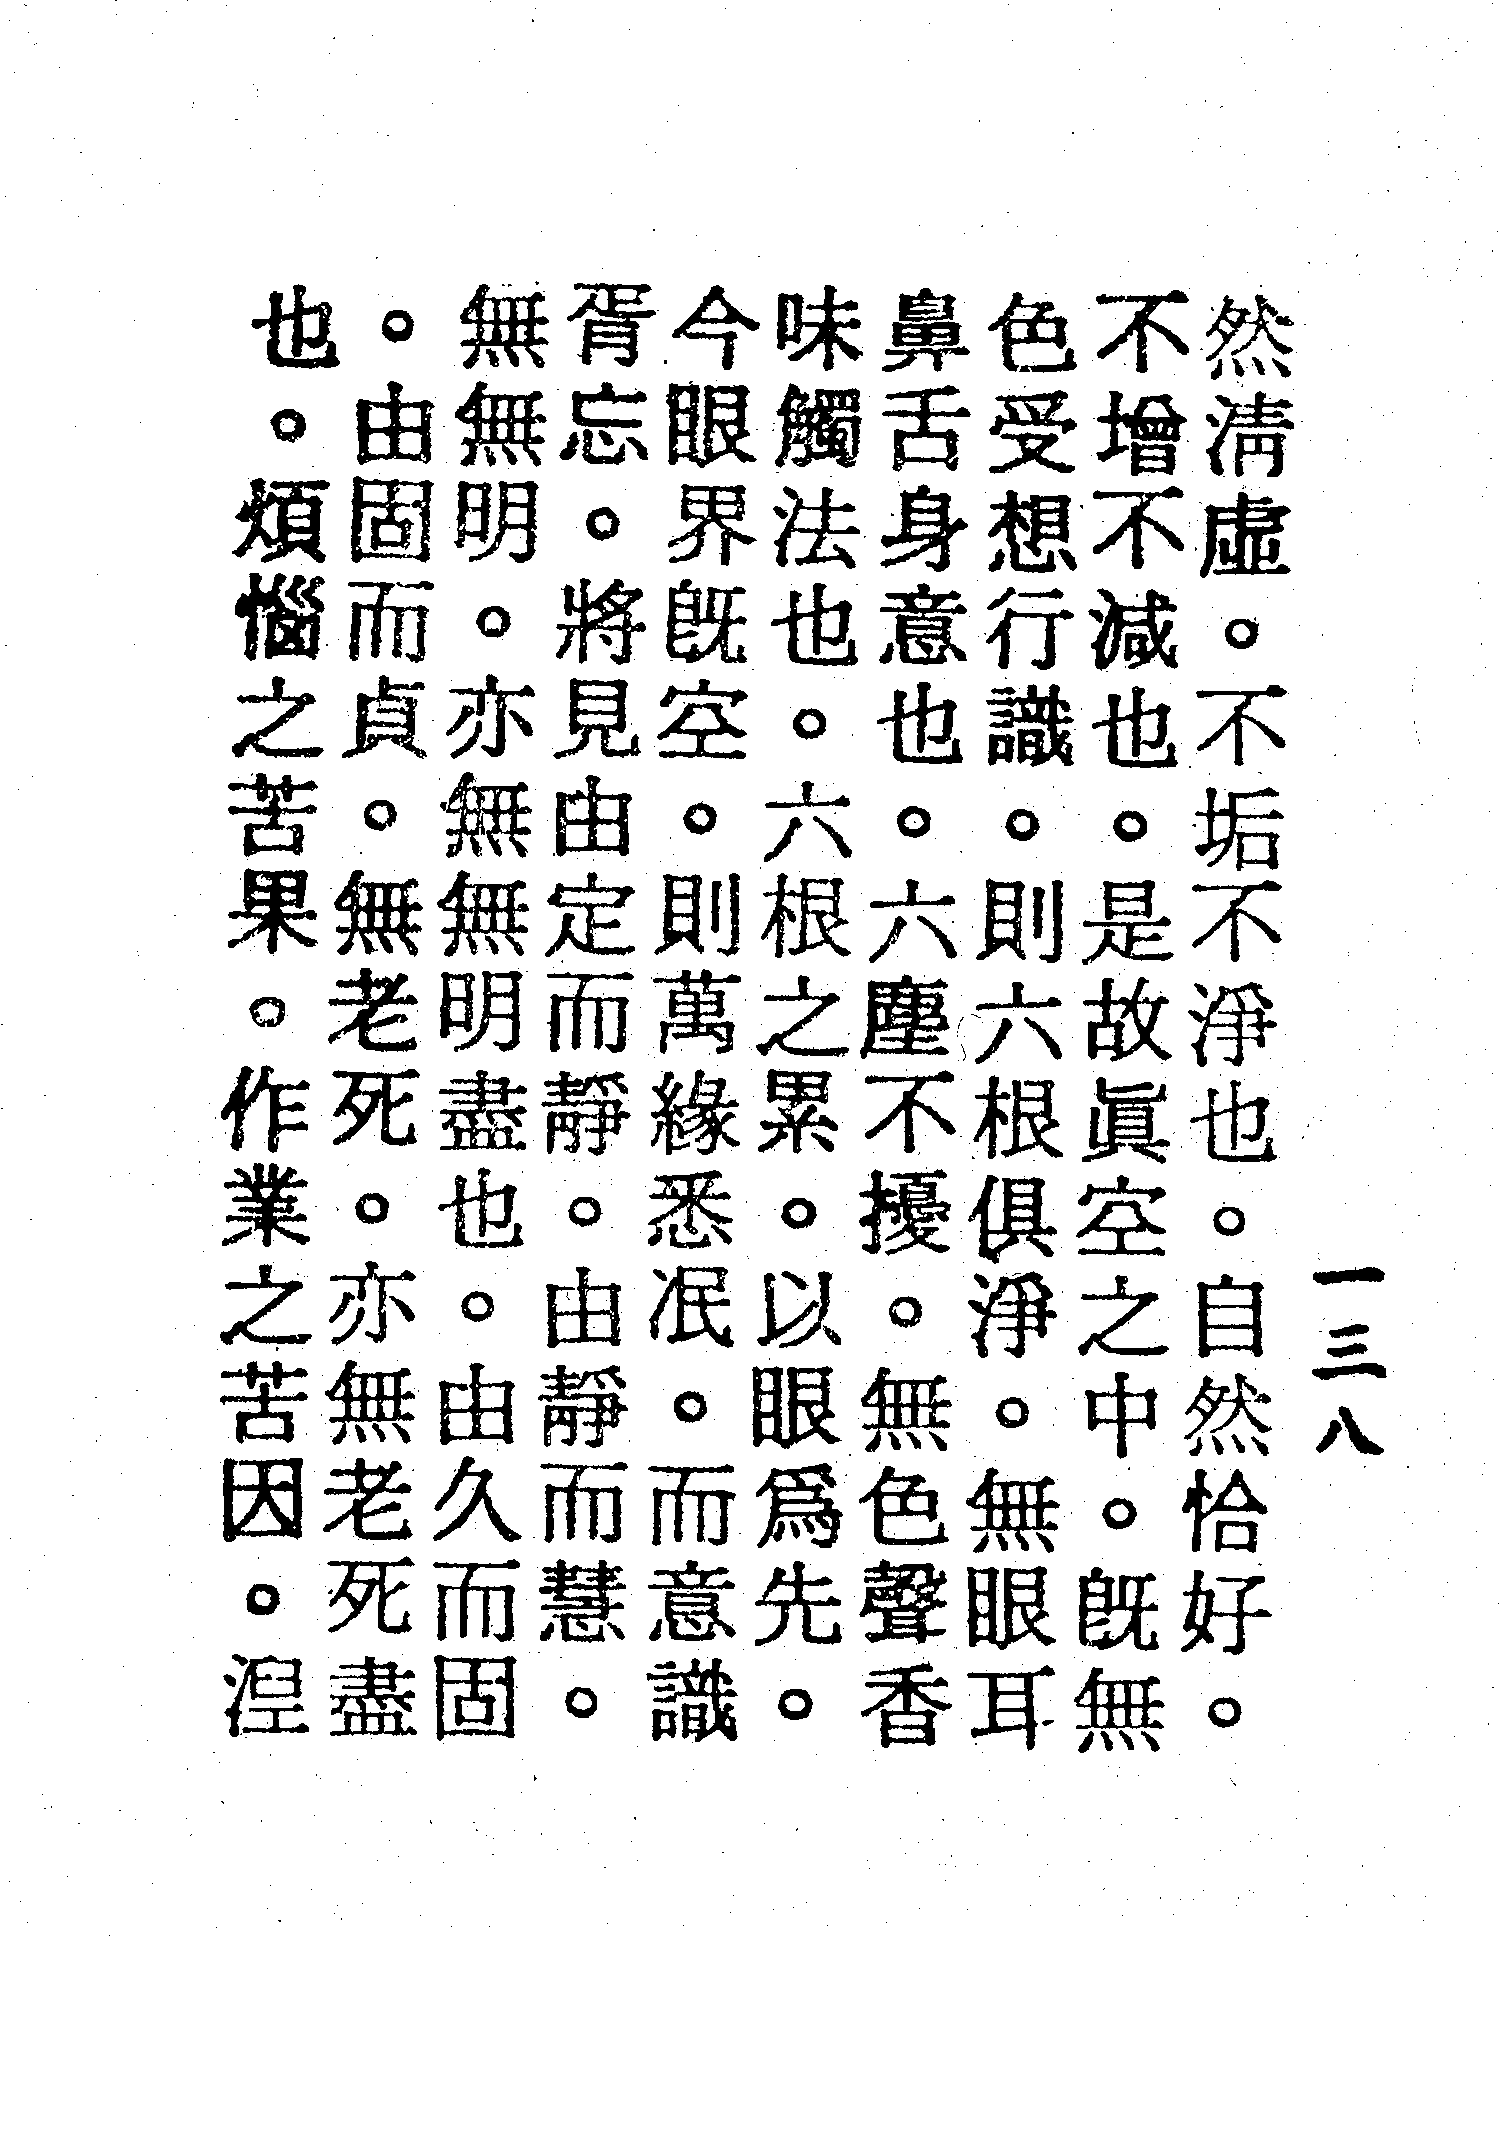 一三八
然淸虛。不垢不淨也。自然恰好。
不增不減也。是故眞空之中。旣無
色受想行識。則六根俱淨。無眼耳
鼻舌身意也。六塵不擾。無色聲香
味觸法也。六根之累。以眼爲先。
今眼界旣空。則萬緣悉泯。而意識
胥忘。將見由定而靜。由靜而慧。
無無明。亦無無明盡也。由久而固
。由固而貞。無老死。亦無老死盡
也。煩惱之苦果。作業之苦因。湼